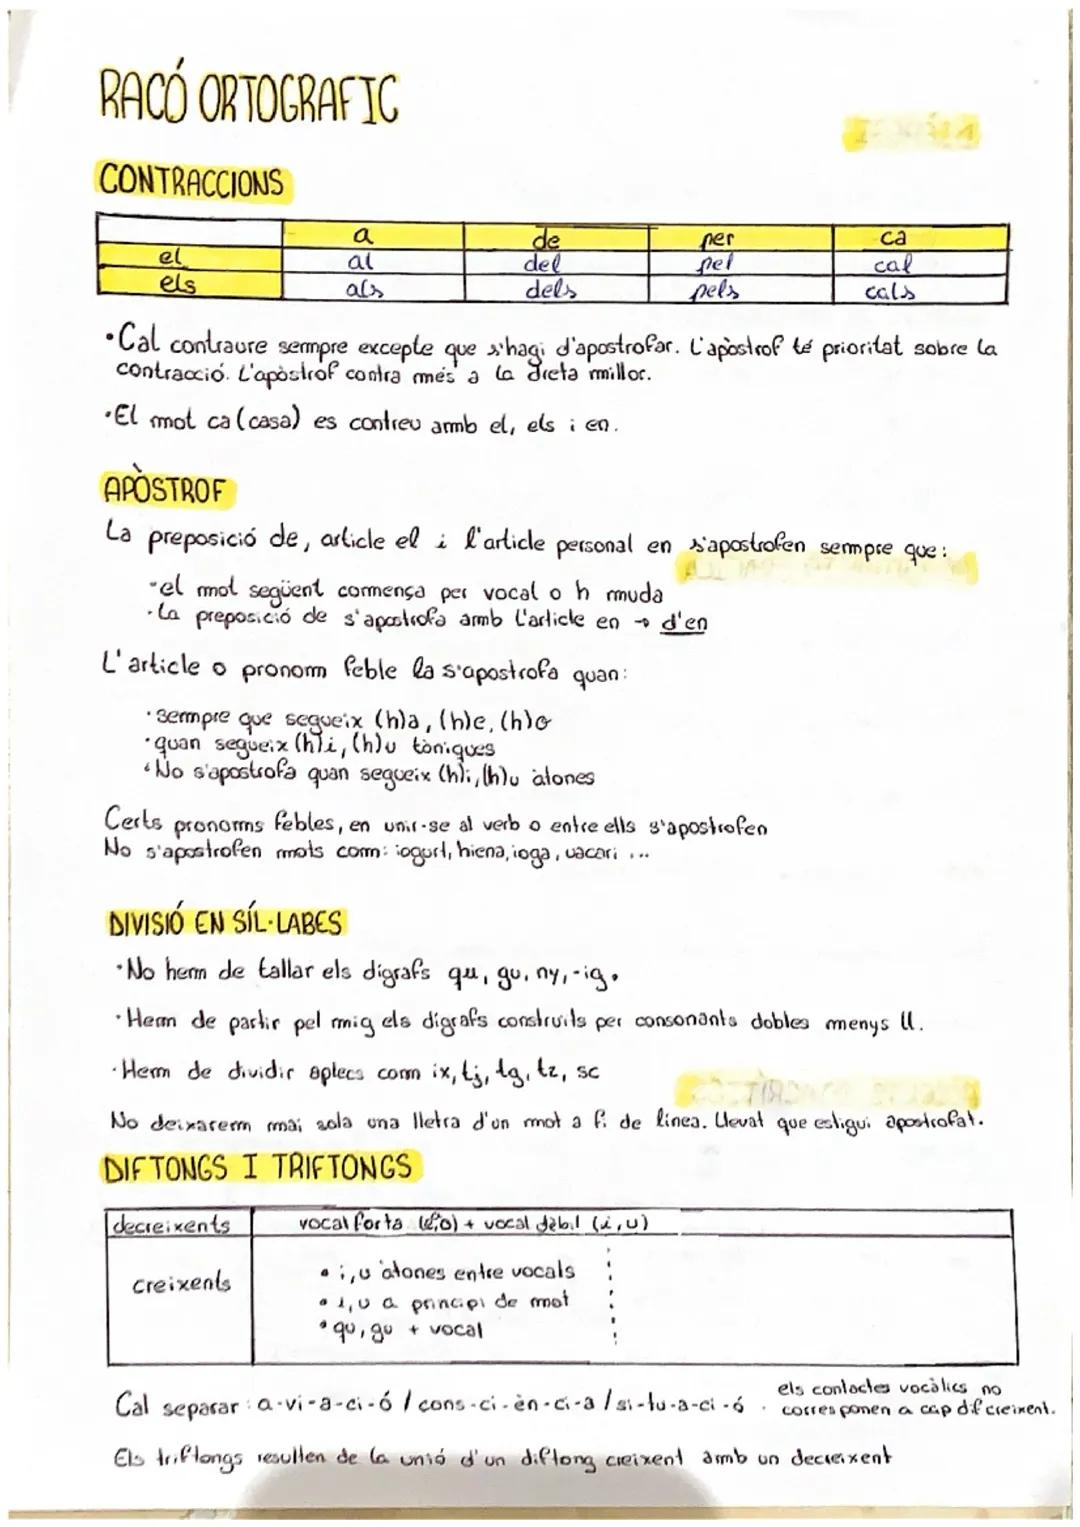 RACÓ ORTOGRAFIC
CONTRACCIONS
a de per ca
el al del pel cal
els als dels pels cals
·Cal contraure sempre excepte que s'hagi d'apostrofar. L'apòstrof té prioritat sobre la
contracció. L'apòstrof contra més a la dreta millor.
·El mot ca (casa) es contreu amb el, els i en.
APÒSTROF
La preposició de, article el i l'article personal en s'apostrofen sempre que:
·el mot següent comença per vocal o h muda
·La preposició de s'apostrofa amb l'article en → d'en
L'article o pronom feble la s'apostrofa quan:
·sempre que segueix (h)a, (h)e, (h)o
·quan segueix (h)i, (h)u tòniques
·No s'apostrofa quan segueix (h)i, (h)u àtones
Certs pronoms febles, en unir-se al verb o entre ells s'apostrofen
No s'apostrofen mots com: iogurt, hiena, ioga, uacari ...
DIVISIÓ EN SÍL·LABES
·No hem de tallar els dígrafs qu, gu, ny, -ig.
·Hem de partir pel mig els dígrafs construïts per consonants dobles menys ll.
·Hem de dividir aplecs com ix, tj, tg, tz, sc
No deixarem mai sola una lletra d'un mot a fi de línea. Llevat que estigui apostrofat.
DIFTONGS I TRIFTONGS
decreixents vocal forta (e,o) + vocal dèbil (i, u)
creixents
• i, u àtones entre vocals
• i, u a principi de mot
• qu, gu + vocal
Cal separar: a-vi-a-ci-ó / cons-ci-èn-ci-a / si-tu-a-ci-ó.
els contactes vocàlics no
corresponen a cap dif creixent.
Els triftongs resulten de la unió d'un diftong creixent amb un decreixent